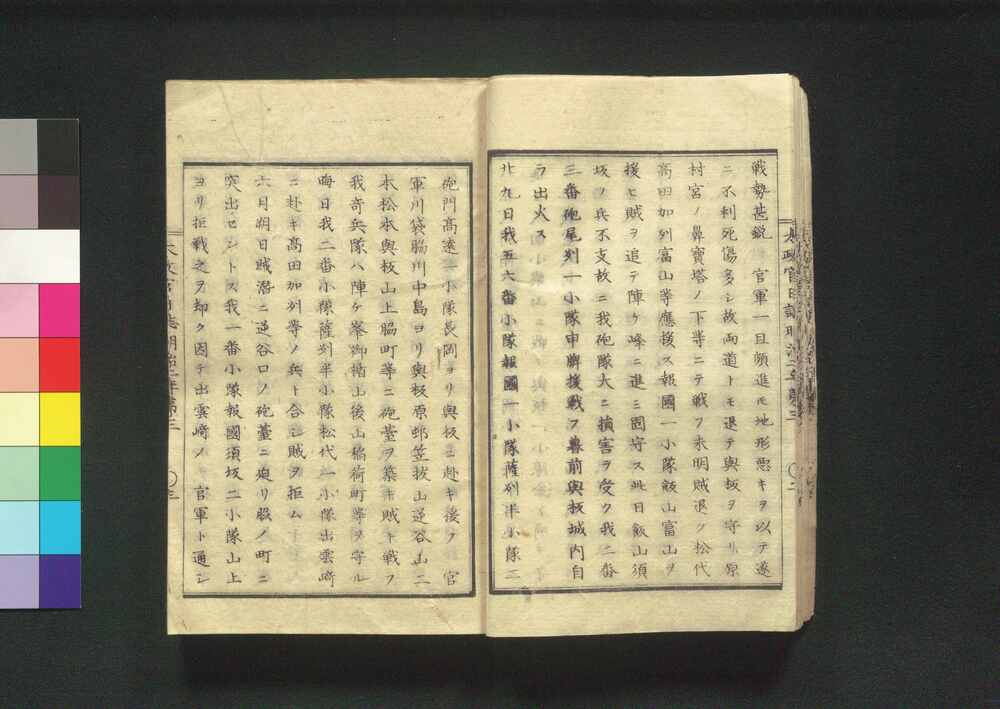 戦勢甚鋭　官軍一旦頻進モ地形悪キヲ以テ遂
ニ不利死傷多シ故両道トモ退テ與板ヲ守リ原
村宮ノ鼻寶塔ノ下等ニテ戦フ未明賊退ク松代
髙田加列富山等應援ス報國一小隊飯山富山ヲ
援ヒ賊ヲ追テ陣ケ峰ニ進ミ固守ス此日飯山須
坂ノ兵不支故ニ我砲隊大ニ損害ヲ受ク我二番
三番砲尾列一小隊申牌援戦フ薄前與板城内自
ラ出火ス
廿九日我五六番小隊報國一小隊薩列半小隊二
太政官日誌明治二年第三　〇二
砲門髙遠一小隊長岡ヨリ與板ニ赴キ後フ　官
軍川袋脇川中島ヨリ與板原邨笠抜山逆谷山二
本松本與板山上脇町等ニ砲薹ヲ築キ賊ト戦フ
我竒兵隊八陣ケ峯御楯山後山稲荷町等ヲ守ル
晦日我二番小隊薩列半小隊松代一小隊出雲﨑
ニ赴キ髙田加列等ノ兵ト合シ賊ヲ拒ム
六月朔日賊潜ニ逆谷口ノ砲薹ニ廹リ股ノ町ニ
突出セントス我一番小隊報國須坂二小隊山上
ヨリ拒戦之ヲ却ク因テ出雲﨑ノ　官軍ト通シ
太政官日誌明治二年第三　〇三